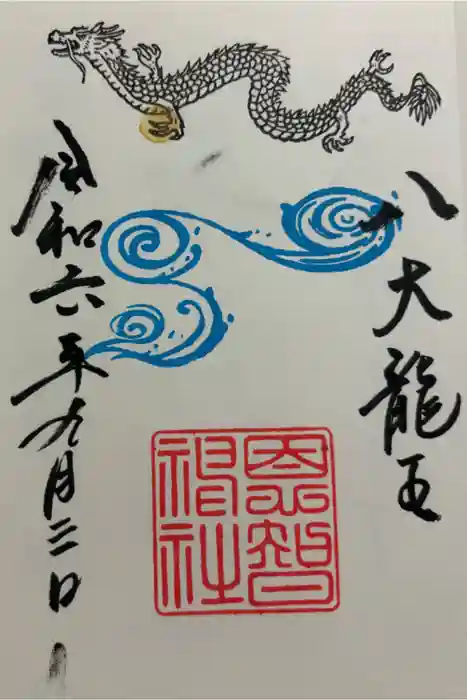 八大龍王
恩智
神社
令和六年九月二日